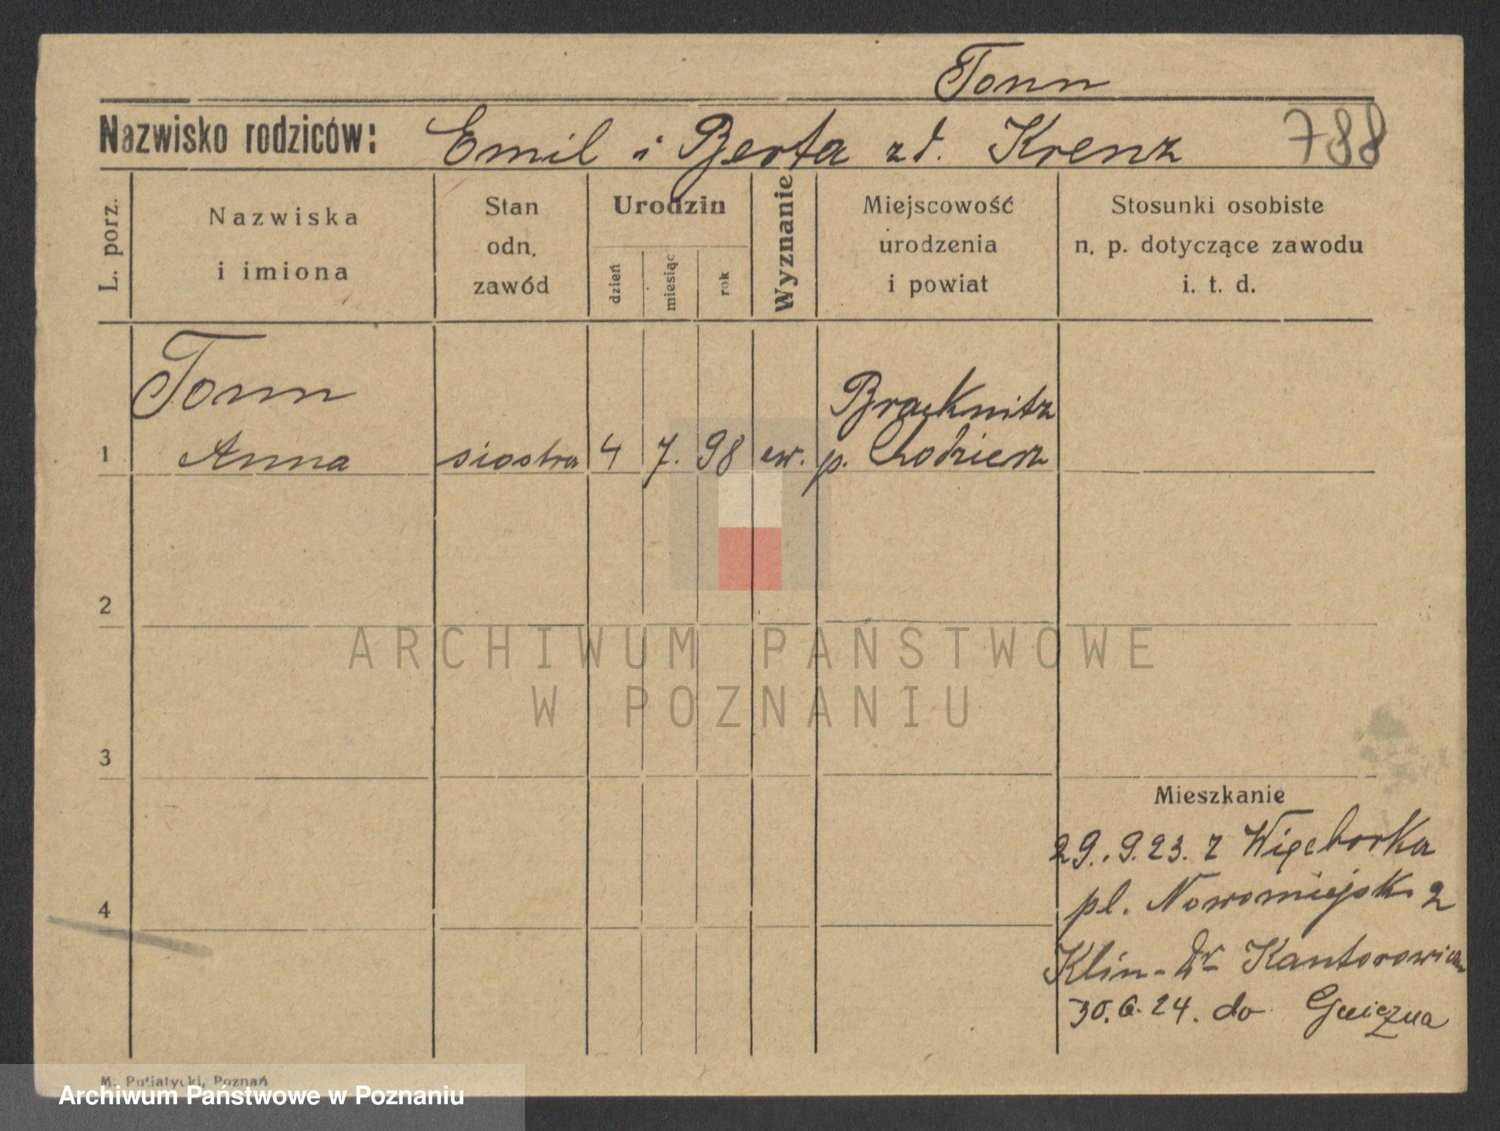 Tonn
Nazwisko rodziców: Emil i Berta zd. Krenz 788
L. porz.
Nazwiska
i imiona
Stan
odn.
zawód
Urodzin
dzień
miesiąc
rok
Wyznanie
Miejscowość
urodzenia
i powiat
Stosunki osobiste
n. p. dotyczące zawodu
i. t. d.
Tonn
1 Anna siostra 4 7. 98 ew.
Bracknitz
p. Chodzież
2
3
4
Mieszkanie
29. 9. 23. z Więcborka
pl. Nowomiejsk 2
Klin - Dr Kantorowicza
30. 6. 24. do Gniezna
M. Putiatycki, Poznań
ARCHIWUM PAŃSTWOWE
W POZNANIU
Archiwum Państwowe w Poznaniu